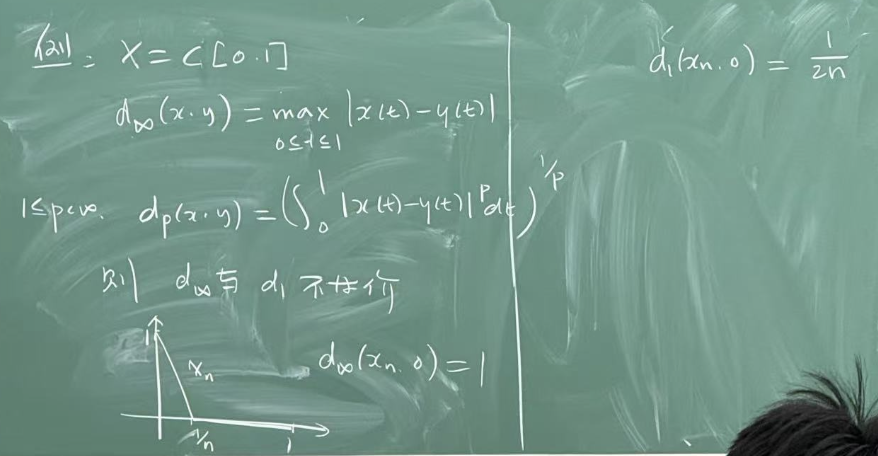 例: X = C[0.1]
d∞(x.y) = max |x(t)-y(t)|
0≤t≤1
1≤p<∞. dp(x.y) = (∫₀¹ |x(t)-y(t)|ᵖdt)^1/p
则 d∞与 d₁ 不等价
1
xn
d∞(xn.0) = 1
1/n 1
d₁(xn.0) = 1/2n